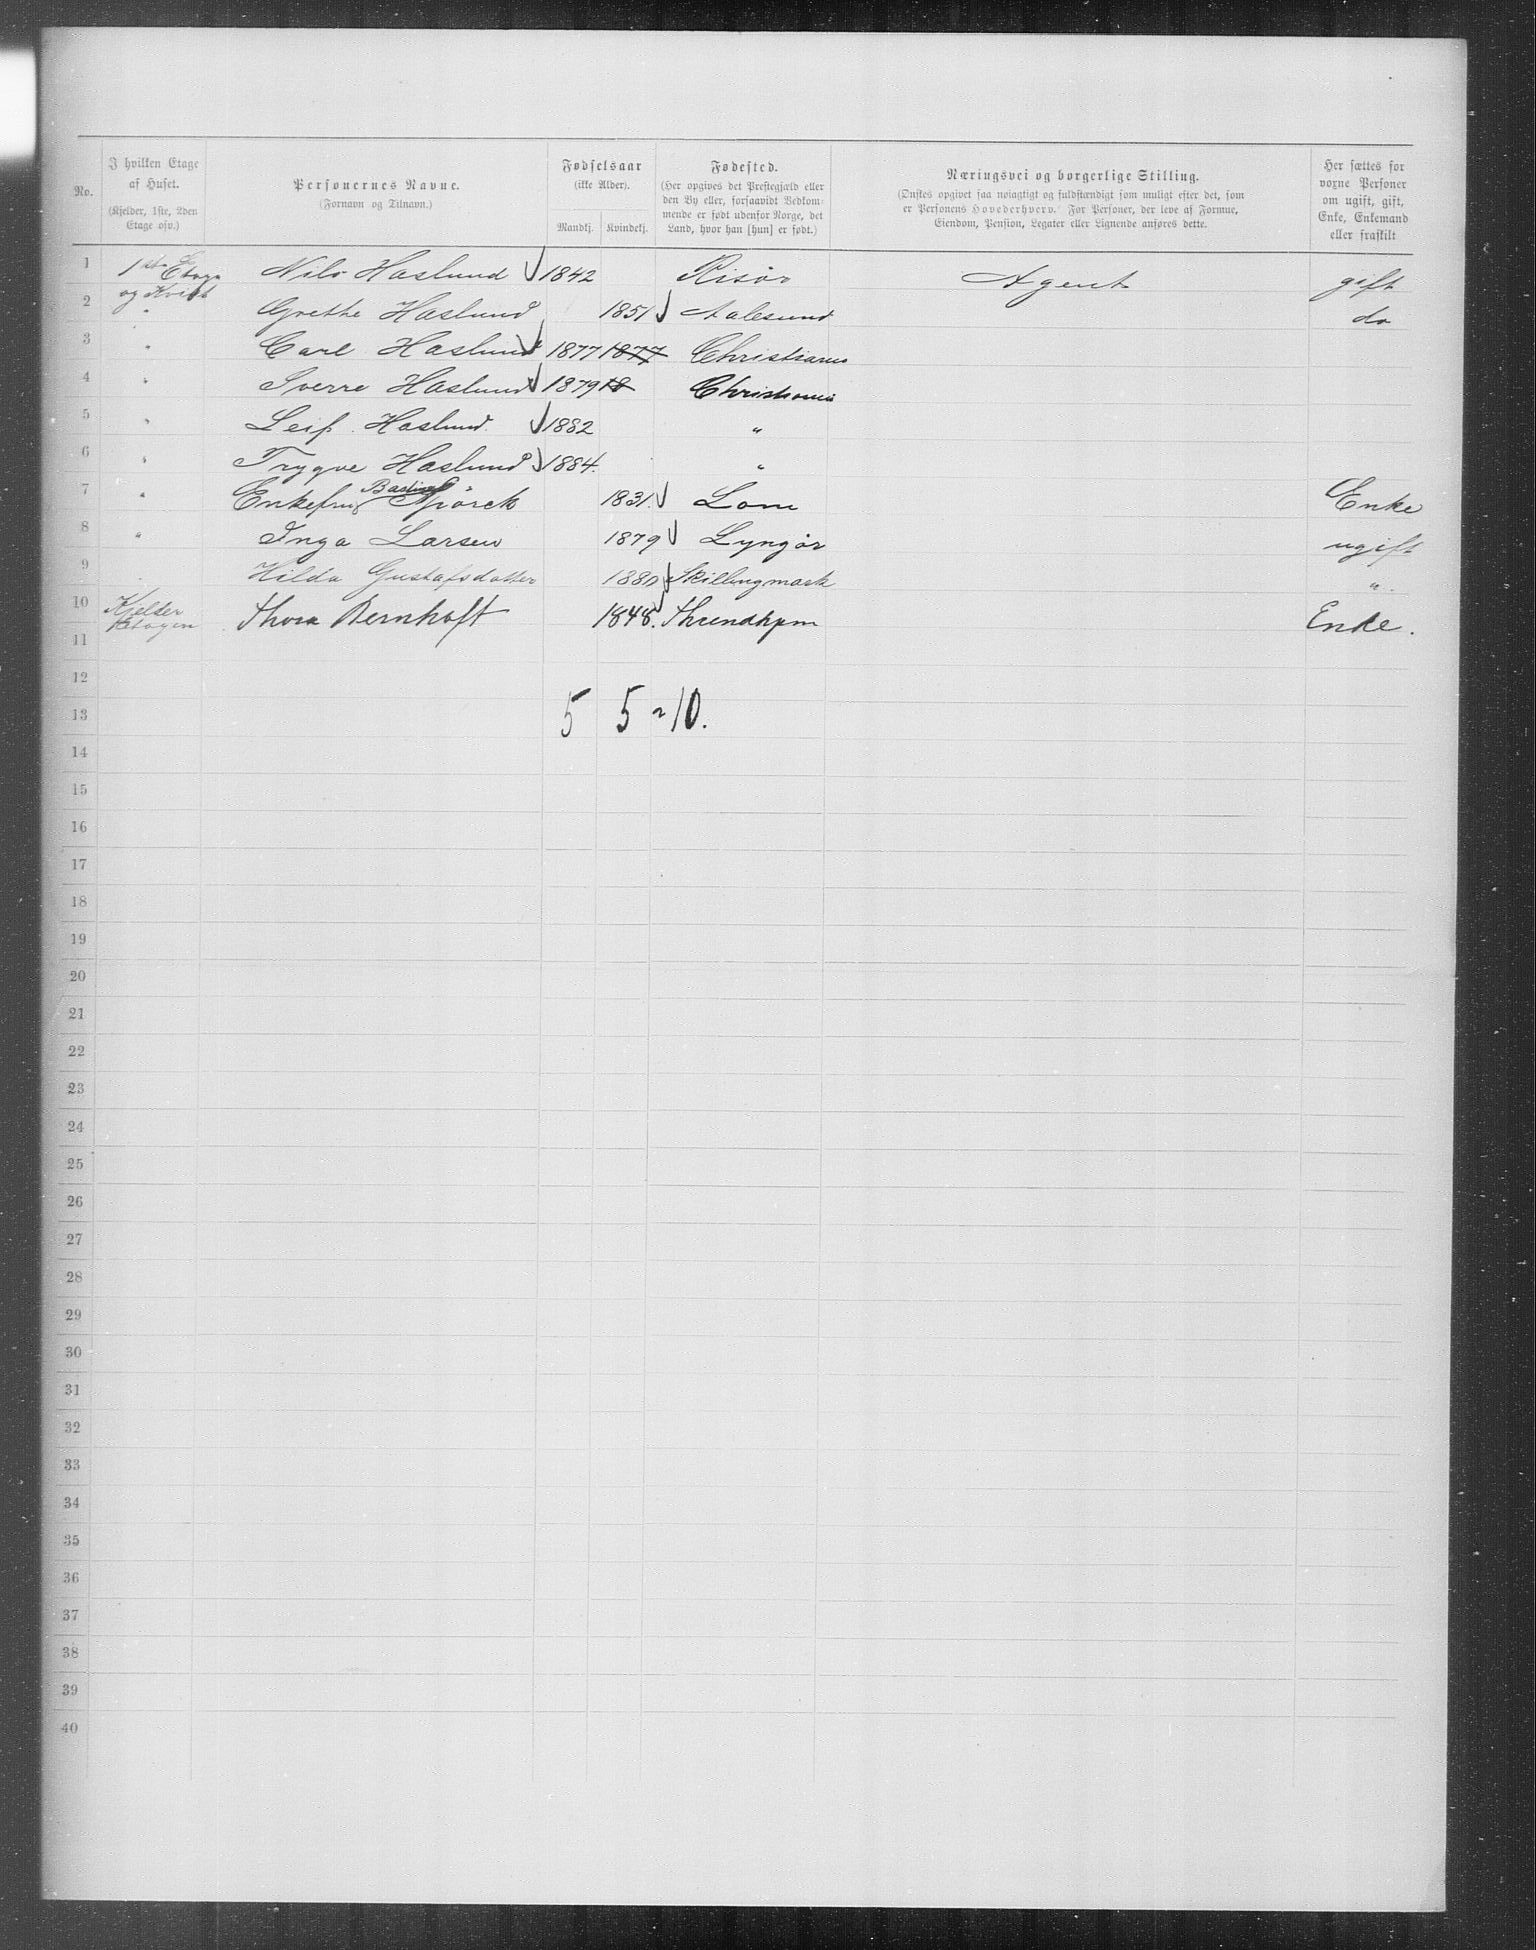 No. | I hvilken Etage af Huset. (Kjelder, 1ste, 2den Etage osv.) | Personernes Navne. (Fornavn og Tilnavn.) | Fødselsaar (ikke Alder). Mandkj. | Kvindekj. | Fødested. (Her opgives det Prestegjæld eller den By eller, forsaavidt Vedkommende er født udenfor Norge, det Land, hvor han [hun] er født.) | Næringsvei og borgerlige Stilling. (Ønskes opgivet saa nøiagtigt og fuldstændigt som muligt efter det, som er Personens Hovederhverv. For Personer, der leve af Formue, Eiendom, Pension, Legater eller Lignende anføres dette. | Her sættes for voxne Personer om ugift, gift, Enke, Enkemand eller fraskilt
1 | 1ste Etage | Nils Haslund | 1842 | | Risør | Agent | gift
2 | og Kvist " | Grethe Haslund | | 1851 | Aalesund | | do
3 | " | Carl Haslund | 1877 | 1877 | Christiania
4 | " | Sverre Haslund | 1879 | 18 | Christiania
5 | " | Leif Haslund | 1882 | | "
6 | " | Trygve Haslund | 1884. | | "
7 | " | Enkefru Spörck | | 1831. | Lom | | Enke
8 | " | Inga Larsen | | 1879 | Lyngør | | ugift
9 | | Hilda Gustafsdatter | | 1880 | Skillingmark | | "
10 | Kjelder Etagen | Thora Bernhoft | | 1848. | Throndhjem | | Enke.
11
12
13 5 5 = 10.
14
15
16
17
18
19
20
21
22
23
24
25
26
27
28
29
30
31
32
33
34
35
36
37
38
39
40